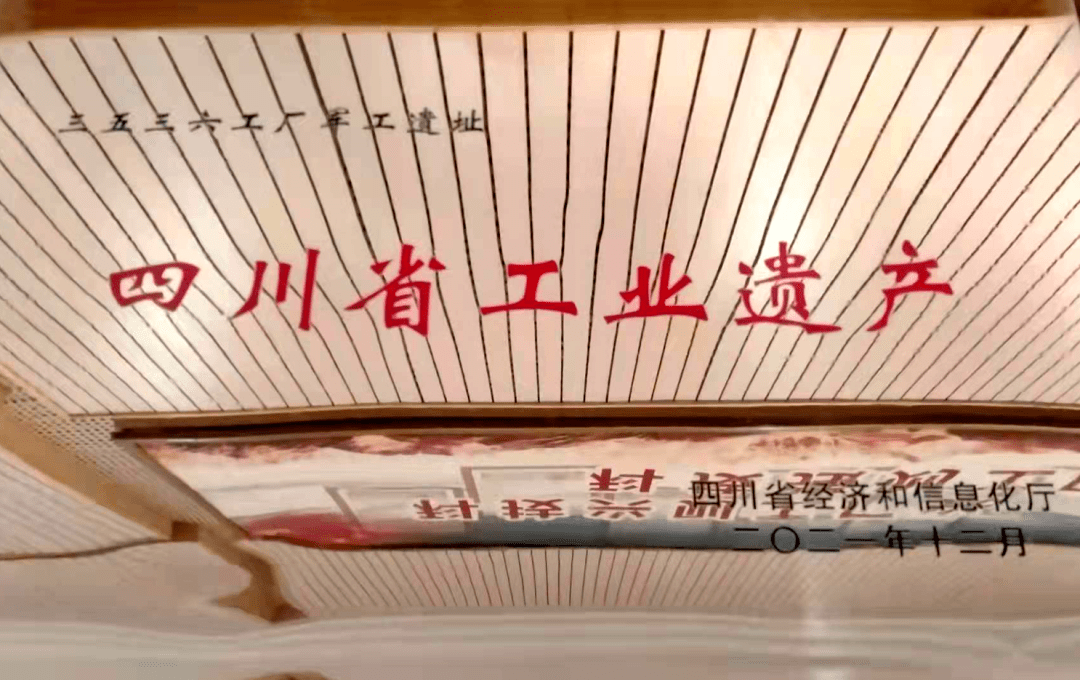 三五三六工厂军工遺址
四川省工业遗产
四川省经济和信息化厅
二〇二一年十二月